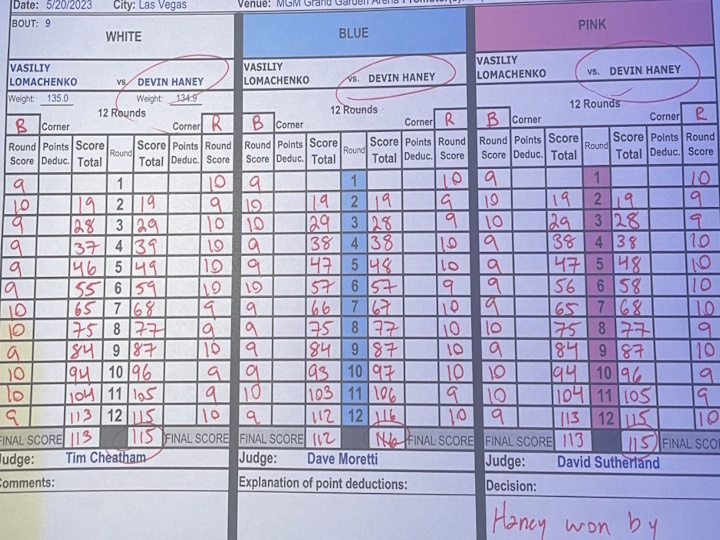 Date: 5/20/2023 City: Las Vegas Venue: MGM Grand Garden Arena
BOUT: 9
WHITE BLUE PINK
VASILIY LOMACHENKO vs. DEVIN HANEY VASILIY LOMACHENKO vs. DEVIN HANEY VASILIY LOMACHENKO vs. DEVIN HANEY
Weight: 135.0 Weight: 134.9
12 Rounds 12 Rounds 12 Rounds
B Corner Corner R B Corner Corner R B Corner Corner R
Round Score Points Deduc. Score Total Round Score Total Points Deduc. Round Score Round Score Points Deduc. Score Total Round Score Total Points Deduc. Round Score Round Score Points Deduc. Score Total Round Score Total Points Deduc. Round Score
9 1 10 9 1 10 9 1 10
10 19 2 19 9 10 19 2 19 9 10 19 2 19 9
9 28 3 29 10 10 29 3 28 9 10 29 3 28 9
9 37 4 39 10 9 38 4 38 10 9 38 4 38 10
9 46 5 49 10 9 47 5 48 10 9 47 5 48 10
9 55 6 59 10 10 57 6 57 9 9 56 6 58 10
10 65 7 68 9 9 66 7 67 10 9 65 7 68 10
10 75 8 77 9 9 75 8 77 10 10 75 8 77 9
9 84 9 87 10 9 84 9 87 10 9 84 9 87 10
10 94 10 96 9 9 93 10 97 10 10 94 10 96 9
10 104 11 105 9 10 103 11 106 9 10 104 11 105 9
9 113 12 115 10 9 112 12 116 10 9 113 12 115 10
FINAL SCORE 113 115 FINAL SCORE FINAL SCORE 112 116 FINAL SCORE FINAL SCORE 113 115 FINAL SCO
Judge: Tim Cheatham Judge: Dave Moretti Judge: David Sutherland
Comments: Explanation of point deductions: Decision:
Haney won by